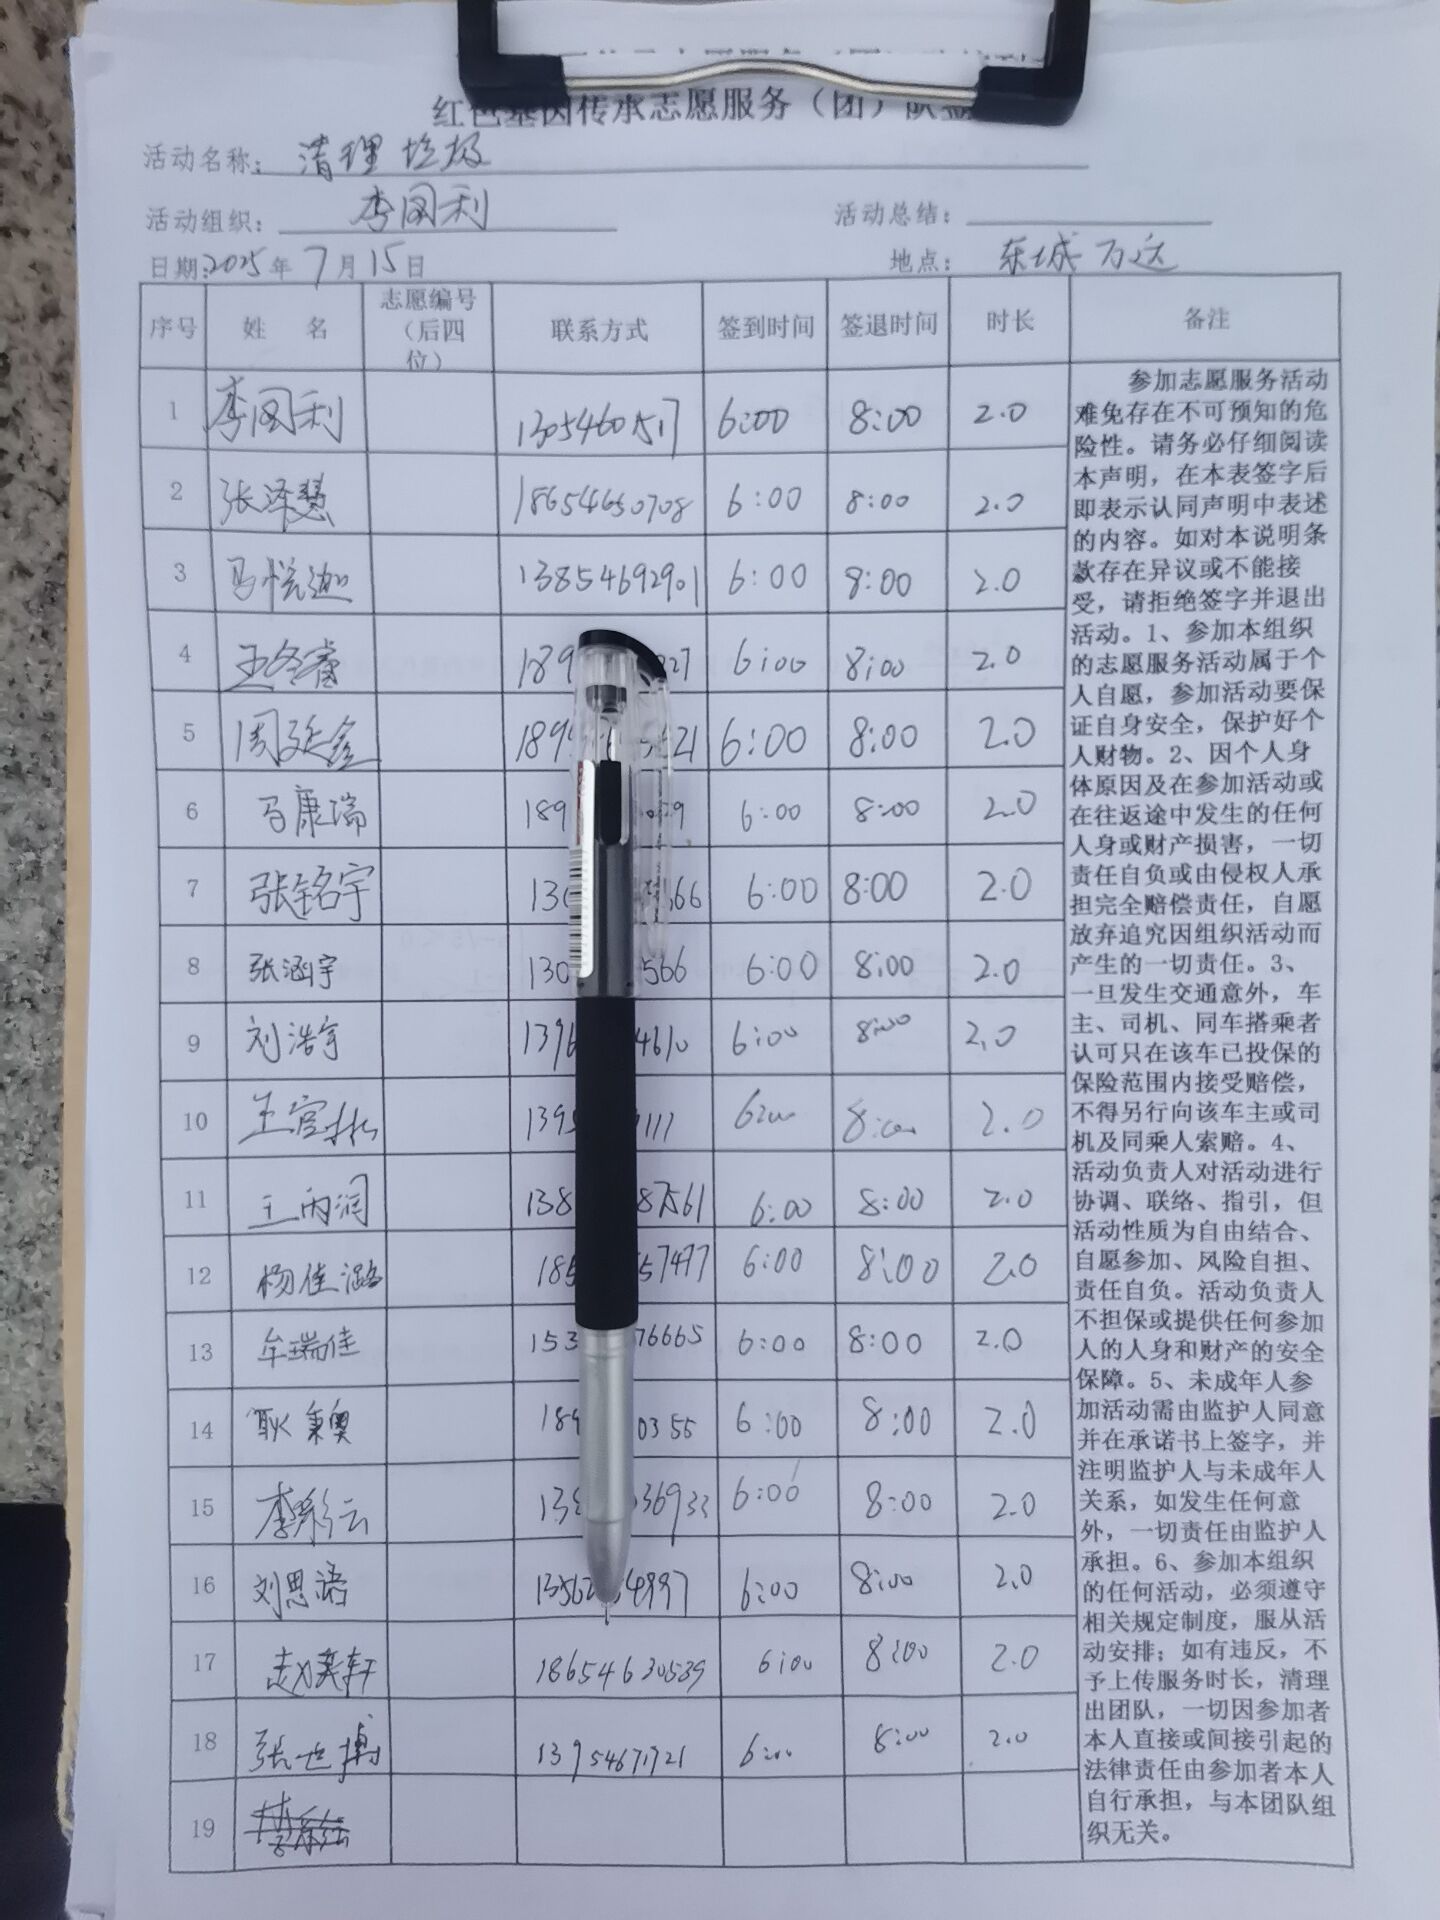 红色基因传承志愿服务（团）队
活动名称：清理垃圾
活动组织：李国利 活动总结：
日期：2025年7月15日 地点：东城万达
序号 姓 名 志愿编号（后四位） 联系方式 签到时间 签退时间 时长 备注
1 李国利 1305460517 6:00 8:00 2.0
2 张泽慧 18654650708 6:00 8:00 2.0
3 马悦迦 13854692901 6:00 8:00 2.0
4 王冬睿 189 27 6:00 8:00 2.0
5 周延鑫 189 21 6:00 8:00 2.0
6 马康瑞 189 6:00 8:00 2.0
7 张铭宇 130 66 6:00 8:00 2.0
8 张涵宇 130 566 6:00 8:00 2.0
9 刘浩宇 1396 4610 6:00 8:00 2.0
10 1395 111 6:00 8:00 2.0
11 王丙润 138 87561 6:00 8:00 2.0
12 杨佳潞 185 57477 6:00 8:00 2.0
13 牟瑞佳 153 76665 6:00 8:00 2.0
14 耿秉奥 189 0355 6:00 8:00 2.0
15 李彩云 138 36933 6:00 8:00 2.0
16 刘思语 1356 4997 6:00 8:00 2.0
17 赵英轩 18654630539 6:00 8:00 2.0
18 张世博 13954671721 6:00 8:00 2.0
19
参加志愿服务活动
难免存在不可预知的危
险性。请务必仔细阅读
本声明，在本表签字后
即表示认同声明中表述
的内容。如对本说明条
款存在异议或不能接
受，请拒绝签字并退出
活动。1、参加本组织
的志愿服务活动属于个
人自愿，参加活动要保
证自身安全，保护好个
人财物。2、因个人身
体原因及在参加活动或
在往返途中发生的任何
人身或财产损害，一切
责任自负或由侵权人承
担完全赔偿责任，自愿
放弃追究因组织活动而
产生的一切责任。3、
一旦发生交通意外，车
主、司机、同车搭乘者
认可只在该车已投保的
保险范围内接受赔偿，
不得另行向该车主或司
机及同乘人索赔。4、
活动负责人对活动进行
协调、联络、指引，但
活动性质为自由结合、
自愿参加、风险自担、
责任自负。活动负责人
不担保或提供任何参加
人的人身和财产的安全
保障。5、未成年人参
加活动需由监护人同意
并在承诺书上签字，并
注明监护人与未成年人
关系，如发生任何意
外，一切责任由监护人
承担。6、参加本组织
的任何活动，必须遵守
相关规定制度，服从活
动安排；如有违反，不
予上传服务时长，清理
出团队，一切因参加者
本人直接或间接引起的
法律责任由参加者本人
自行承担，与本团队组
织无关。